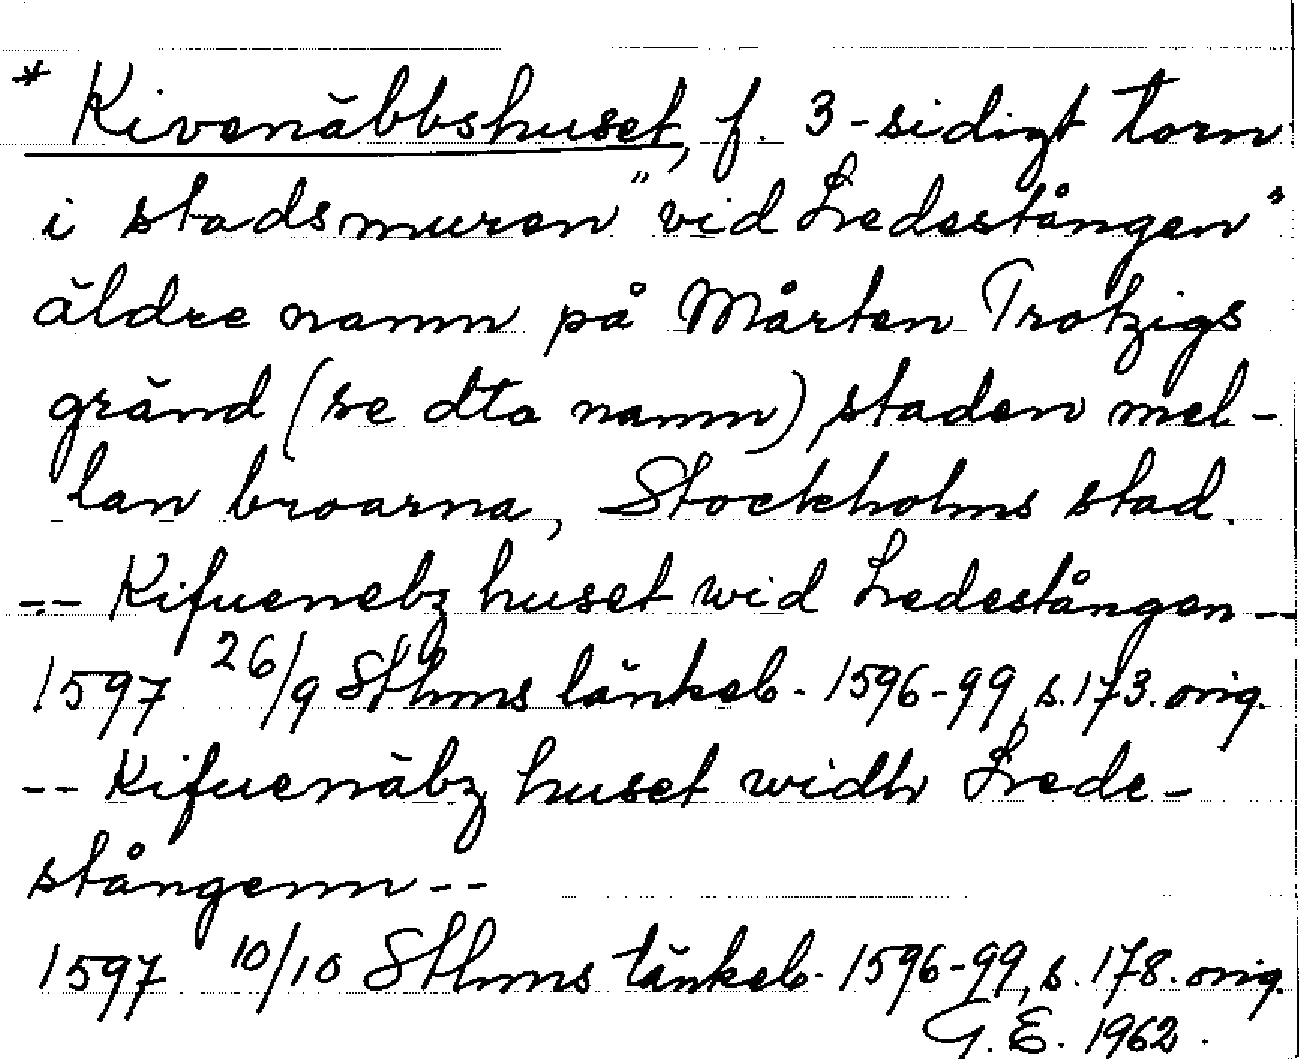 * Kivenäbbshuset, f. 3-sidigt torn
i stadsmuren "vid Ledestången"
äldre namn på Mårten Trotzigs
gränd (se dto namn) staden mel-
lan broarna, Stockholms stad.
-- Kifuenebz huset wid Ledestången --
1597 26/9 Sthms tänkeb. 1596-99, s. 173. orig.
-- Kifuenäbz huset widh Lede-
stångenn --
1597 10/10 Sthms tänkeb. 1596-99, s. 178. orig.
G. E. 1962.